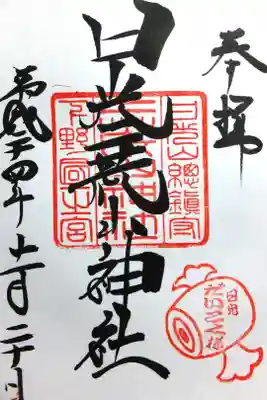 奉拝
日光二荒山神社
平成廿四年十一月二十日
日光山總鎮守
二荒山神社
日光
だいこく様